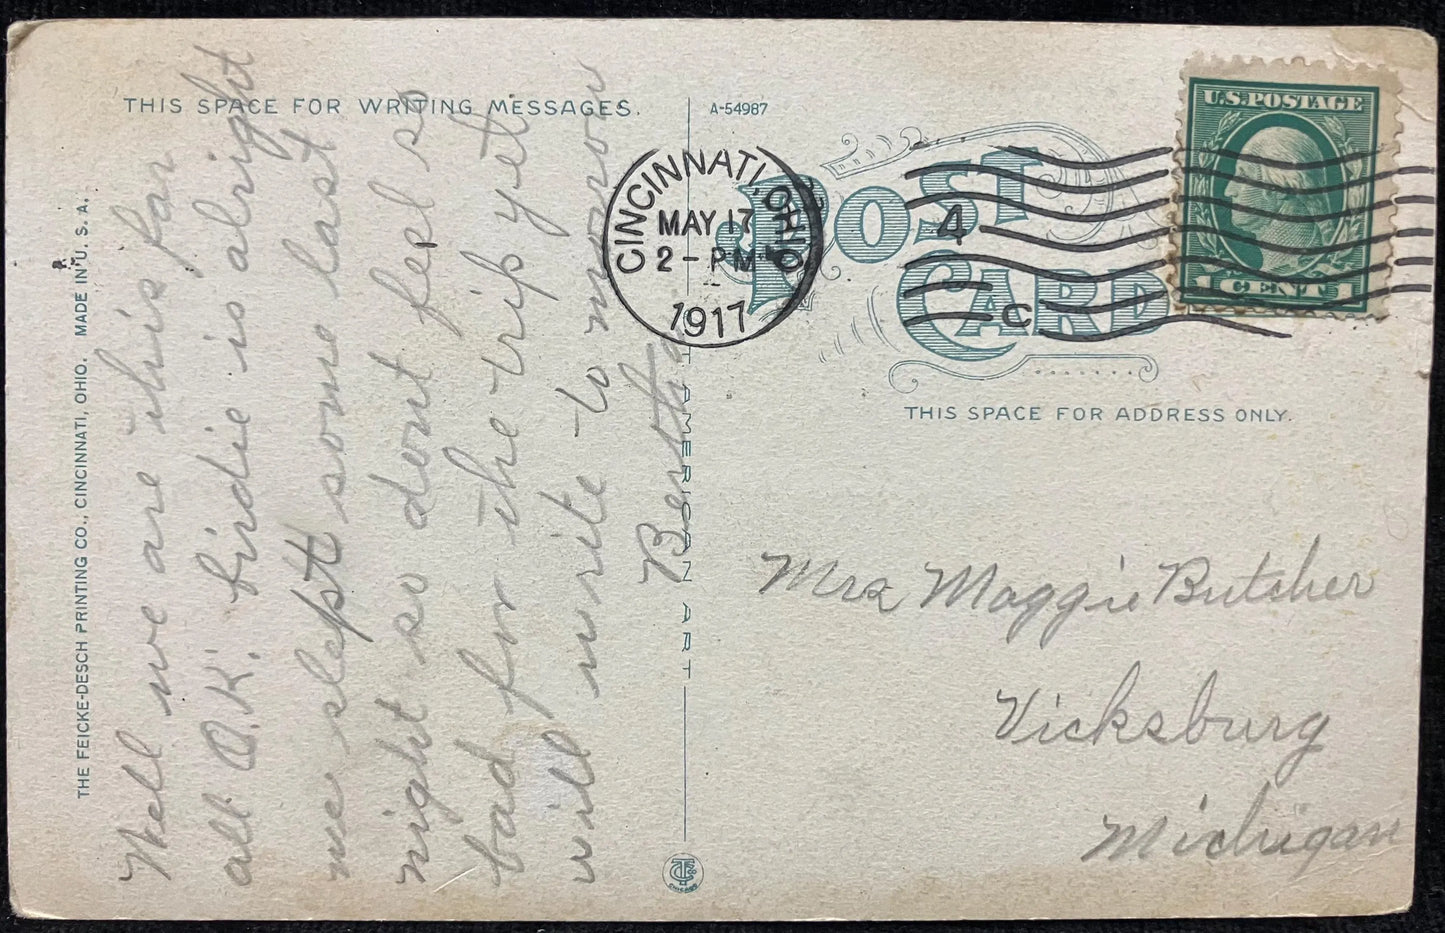 THIS SPACE FOR WRITING MESSAGES.
A-54987
THE FEICKE-DESCH PRINTING CO., CINCINNATI, OHIO. MADE IN U.S.A.
Well we are this far
all O.K. birdie is alright
we slept some last
night so dont feel so
bad for the trip yet
will write to morrow
Bertha
CINCINNATI, OHIO
MAY 17
2-PM
1917
4
C
POST
CARD
U.S.POSTAGE
1 CENT 1
THIS SPACE FOR ADDRESS ONLY.
T AMERICAN ART
CHICAGO
Mrs Maggie Butcher
Vicksburg
Michigan